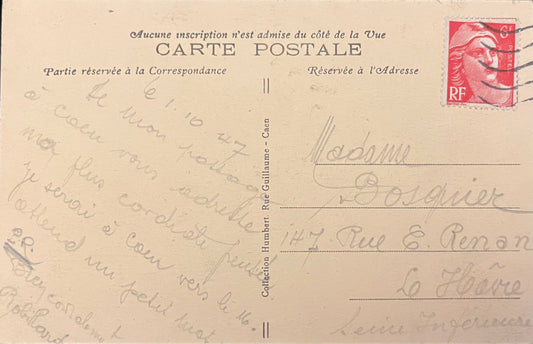 Aucune inscription n'est admise du côté de la Vue
CARTE POSTALE
Partie réservée à la Correspondance
Réservée à l'Adresse
RF
Le 1.10 47
De mon passage
à Caen vous adresse
ma plus cordiale pensée
je serai à Caen vers le 10.
attend un petit mot.
P.R.
Bien cordialement
Collection Humbert Rue Guillaume - Caen
Madame
Bosquier
147 Rue E. Renan
Le Hâvre
Seine Inférieure